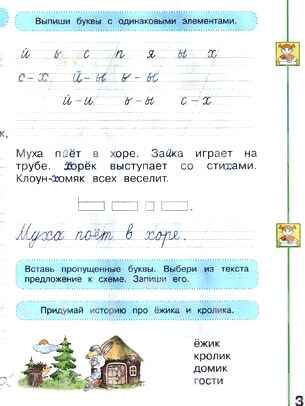 Выпиши буквы с одинаковыми элементами.
й ы с п я ы х
с-х й-ы ъ-ы
й-и ъ-ы с-х
к,
Муха поёт в хоре. Зайка играет на
трубе. Хорёк выступает со стихами.
Клоун-хомяк всех веселит.
Муха поёт в хоре.
Вставь пропущенные буквы. Выбери из текста
предложение к схеме. Запиши его.
Придумай историю про ёжика и кролика.
ёжик
кролик
домик
гости
3